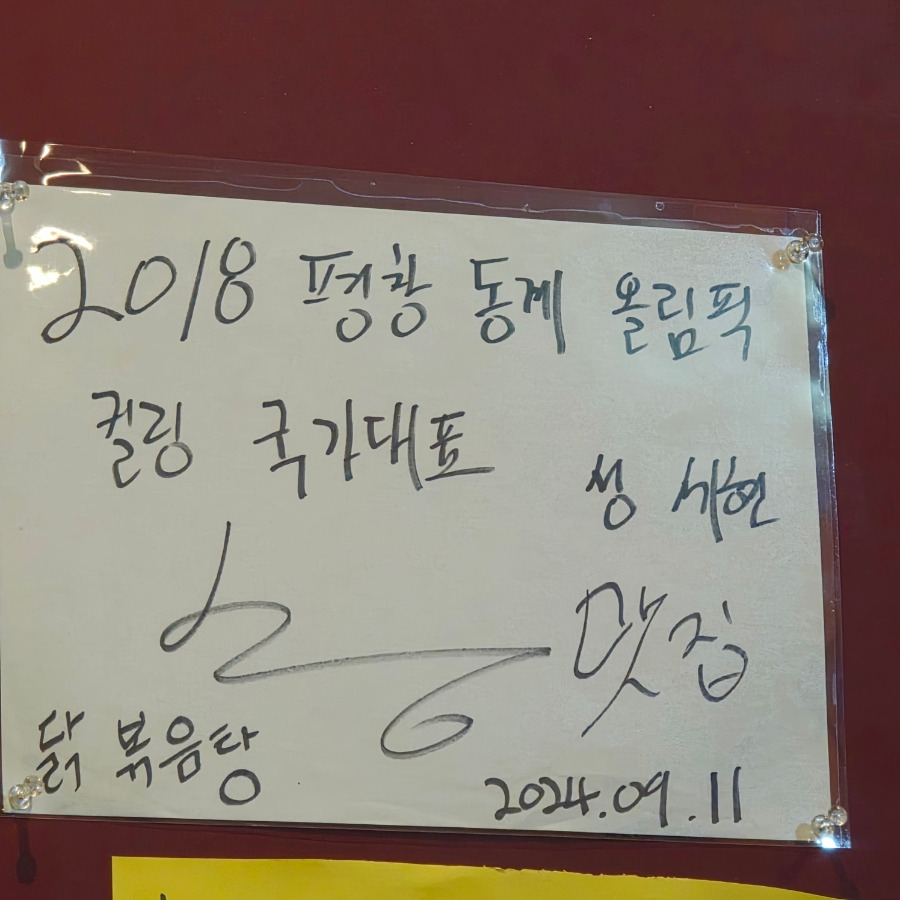 2018 평창 동계 올림픽
컬링 국가대표
성 세현
맛집
닭 볶음탕
2024.09.11